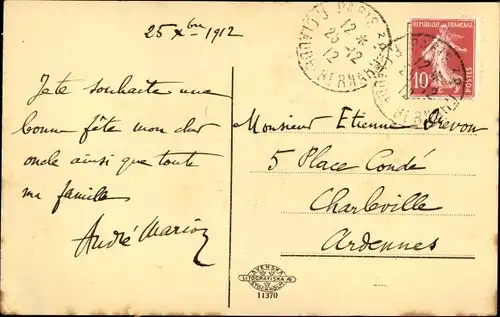 25 Xbre 1912
Je te souhaite une
bonne fête mon cher
oncle ainsi que toute
ma famille
André Marion
Monsieur Etienne Drevon
5 Place Condé
Charleville
Ardennes
PARIS
12 *
23-12
12
REPUBLIQUE FRANÇAISE
10c
POSTES
SVENSKA
LITOGRAFISKA AB
STOCKHOLM
11370